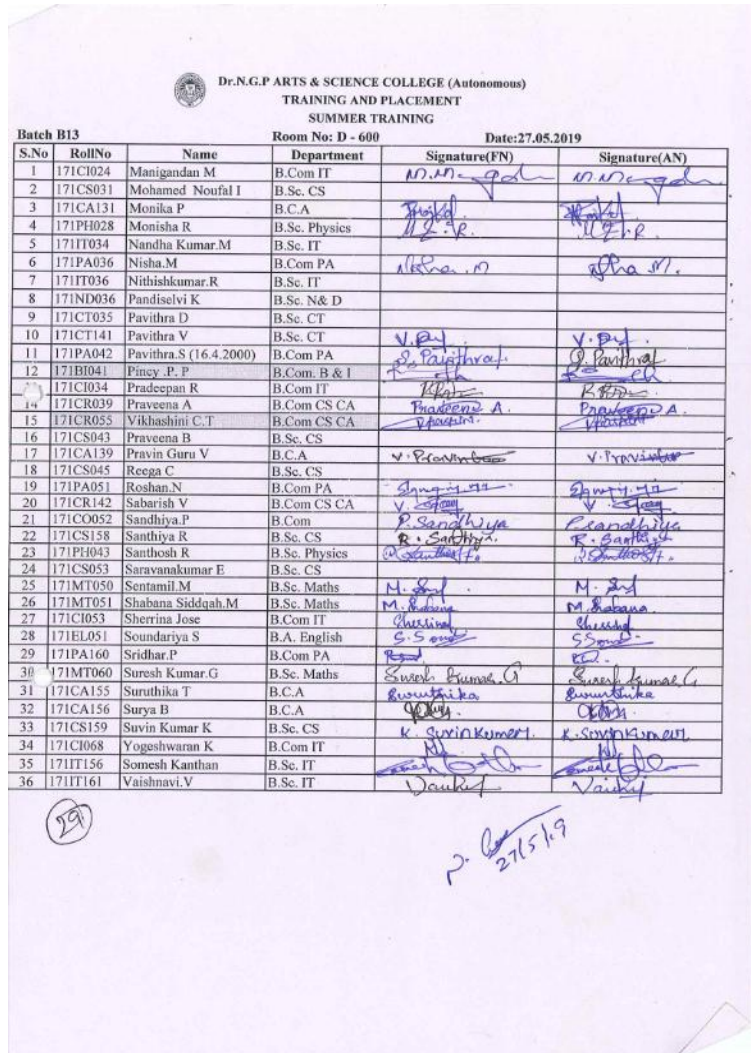 Dr.N.G.P ARTS & SCIENCE COLLEGE (Autonomous)
TRAINING AND PLACEMENT
SUMMER TRAINING
Batch B13 Room No: D - 600 Date:27.05.2019
S.No RollNo Name Department Signature(FN) Signature(AN)
1 171CI024 Manigandan M B.Com IT
2 171CS031 Mohamed Noufal I B.Sc. CS
3 171CA131 Monika P B.C.A
4 171PH028 Monisha R B.Sc. Physics
5 171IT034 Nandha Kumar.M B.Sc. IT
6 171PA036 Nisha.M B.Com PA
7 171IT036 Nithishkumar.R B.Sc. IT
8 171ND036 Pandiselvi K B.Sc. N& D
9 171CT035 Pavithra D B.Sc. CT
10 171CT141 Pavithra V B.Sc. CT
11 171PA042 Pavithra.S (16.4.2000) B.Com PA
12 171BI041 Pincy .P. P B.Com. B & I
171CI034 Pradeepan R B.Com IT
14 171CR039 Praveena A B.Com CS CA Praveena A. Praveena A.
15 171CR055 Vikhashini C.T B.Com CS CA
16 171CS043 Praveena B B.Sc. CS
17 171CA139 Pravin Guru V B.C.A
18 171CS045 Reega C B.Sc. CS
19 171PA051 Roshan.N B.Com PA
20 171CR142 Sabarish V B.Com CS CA
21 171CO052 Sandhiya.P B.Com P.Sandhiya P.Sandhiya
22 171CS158 Santhiya R B.Sc. CS R. Santhiya. R. Santhiya
23 171PH043 Santhosh R B.Sc. Physics
24 171CS053 Saravanakumar E B.Sc. CS
25 171MT050 Sentamil.M B.Sc. Maths
26 171MT051 Shabana Siddqah.M B.Sc. Maths M. Shabana M. Shabana
27 171CI053 Sherrina Jose B.Com IT
28 171EL051 Soundariya S B.A. English
29 171PA160 Sridhar.P B.Com PA
30 171MT060 Suresh Kumar.G B.Sc. Maths Suresh Kumar.G Suresh Kumar.G
31 171CA155 Suruthika T B.C.A Suruthika Suruthika
32 171CA156 Surya B B.C.A
33 171CS159 Suvin Kumar K B.Sc. CS K. Suvin Kumar. K. Suvin Kumar
34 171CI068 Yogeshwaran K B.Com IT
35 171IT156 Somesh Kanthan B.Sc. IT
36 171IT161 Vaishnavi.V B.Sc. IT
29
27/5/19